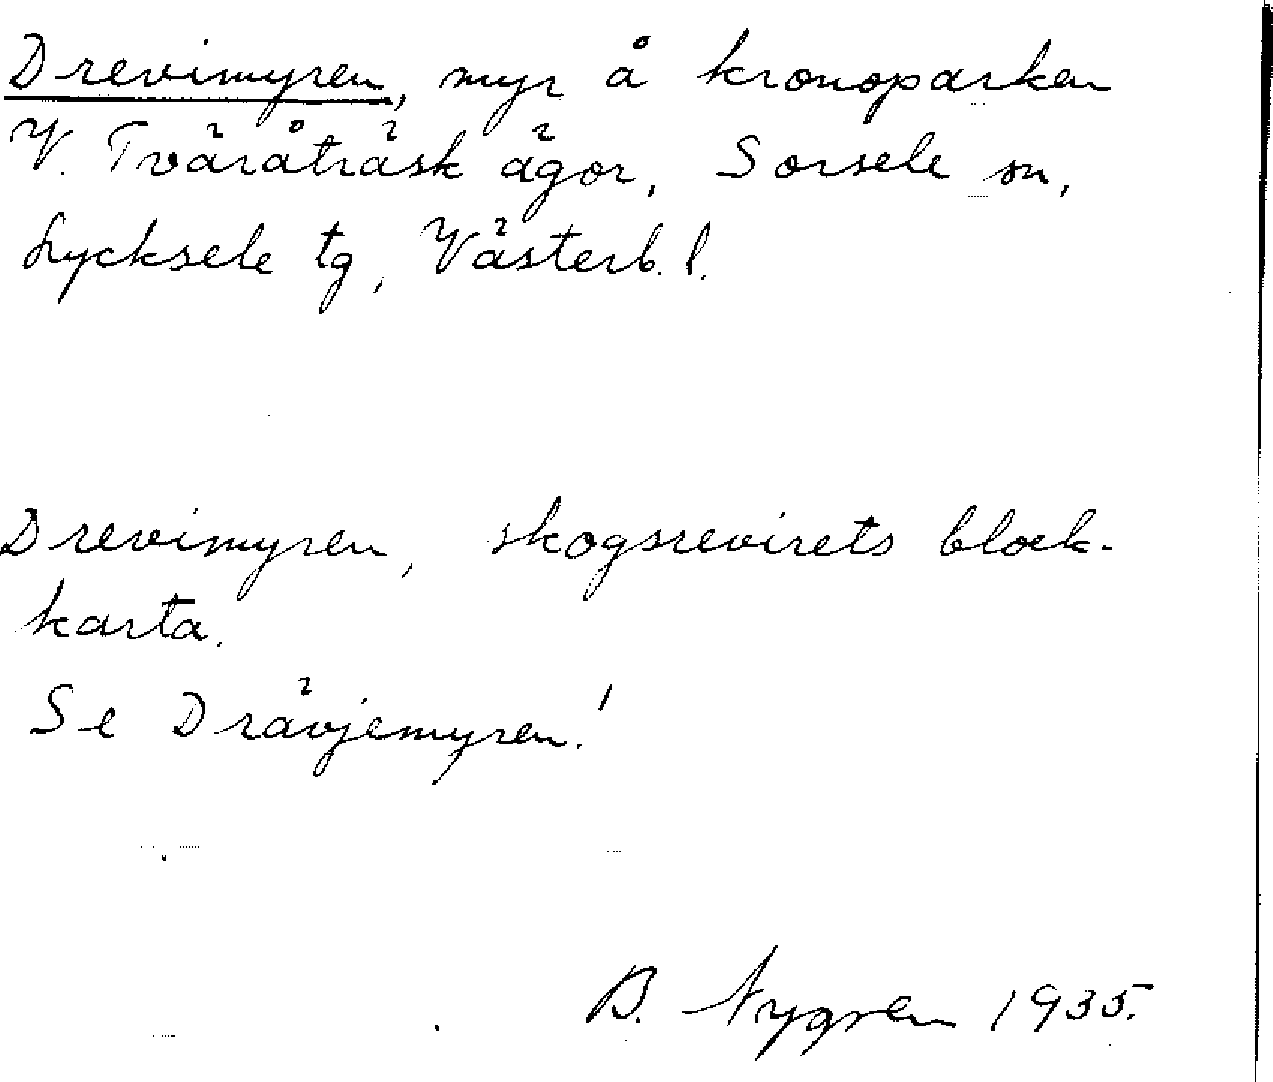 Drevimyren, myr å kronoparken
V. Tväråträsk ägor, Sorsele sn,
Lycksele tg, Västerb. l.
Drevimyren, skogsrevirets block-
karta.
Se Drävjemyren!
B. Nygren 1935.